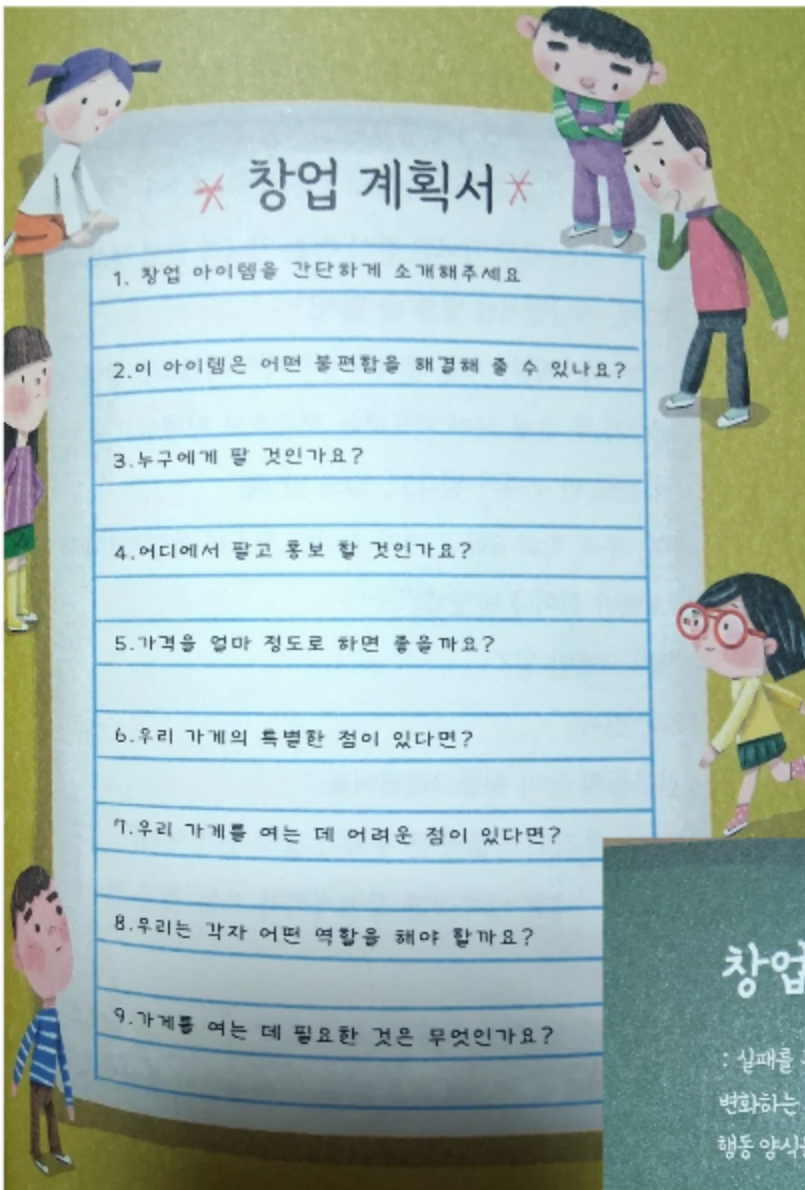 창업 계획서
1. 창업 아이템을 간단하게 소개해주세요
2.이 아이템은 어떤 불편함을 해결해 줄 수 있나요?
3.누구에게 팔 것인가요?
4.어디에서 팔고 홍보 할 것인가요?
5.가격을 얼마 정도로 하면 좋을까요?
6.우리 가게의 특별한 점이 있다면?
7.우리 가게를 여는 데 어려운 점이 있다면?
8.우리는 각자 어떤 역할을 해야 할까요?
9.가게를 여는 데 필요한 것은 무엇인가요?
창업
: 실패를
변화하는
행동 양식